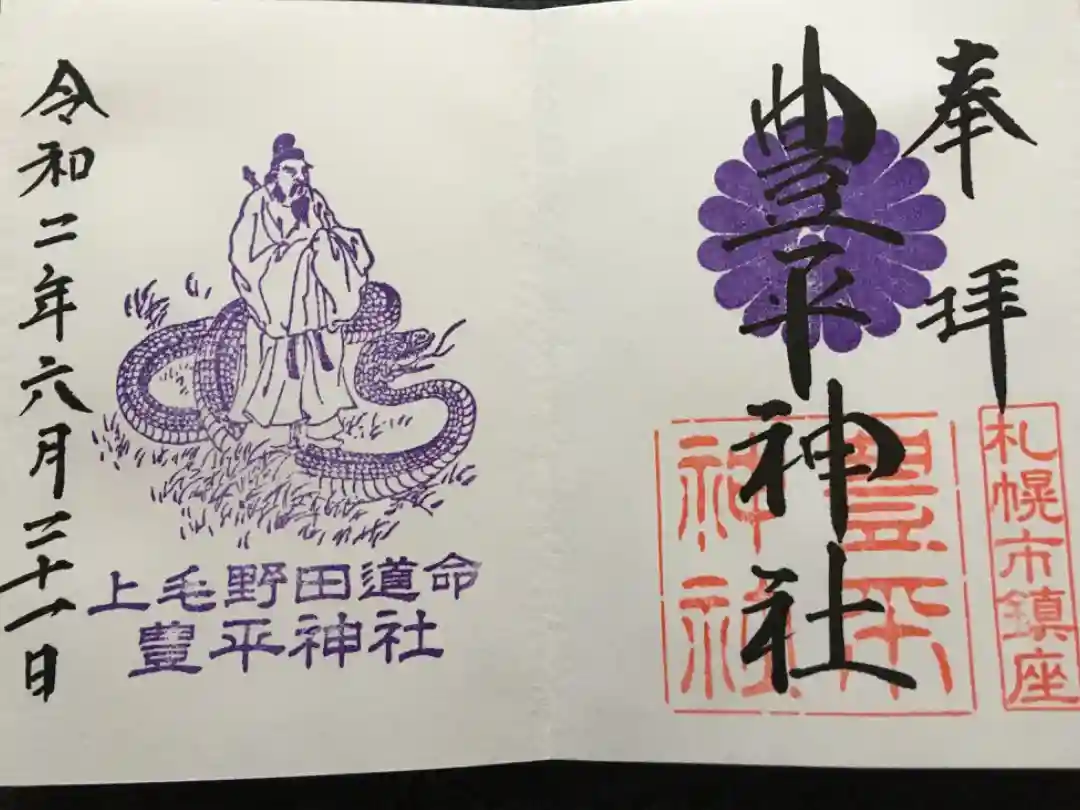 奉拝
豊平神社
豊平
神社
札幌市鎮座
上毛野田道命
豊平神社
令和二年六月二十一日